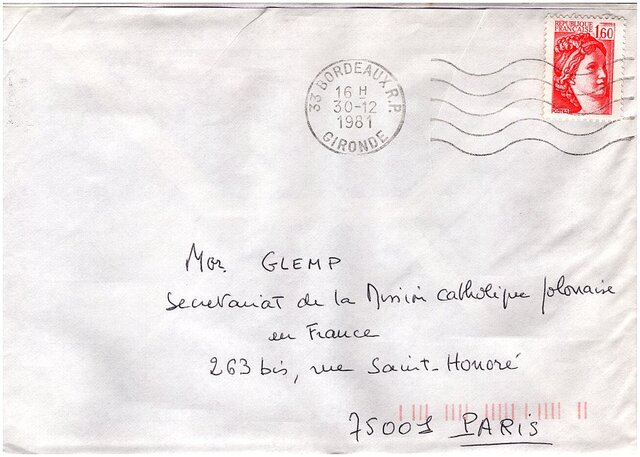 REPUBLIQUE
FRANÇAISE
1,60
33 BORDEAUX R.P.
16 H
30-12
1981
GIRONDE
Mgr. GLEMP
Secretariat de la Mission catholique polonaise
en France
263 bis, rue Saint-Honoré
75001 PARIS